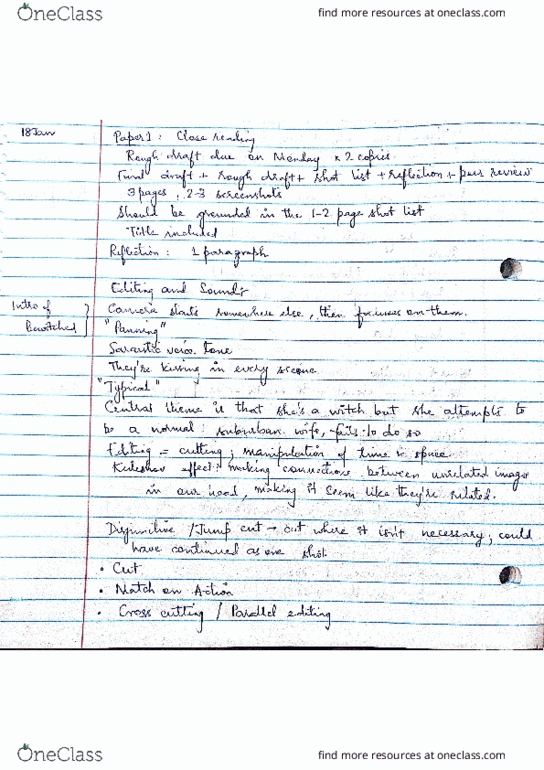 OneClass
find more resources at oneclass.com
18 Jan
Paper 1: Close reading
Rough draft due on Monday x 2 copies
Final draft + rough draft + shot list + reflection + peer review
3 pages, 2-3 screenshots
Should be grounded in the 1-2 page shot list
Title included
Reflection: 1 paragraph
Editing and Sound:
Intro of Bewitched
Camera starts somewhere else, then focuses on them.
"Panning"
Sarcastic voice tone
They're kissing in every scene
"Typical"
Central theme is that she's a witch but she attempts to
be a normal suburban wife, fails to do so
Editing = cutting; manipulation of time & space
Kuleshov effect: making connections between unrelated images
in our head, making it seem like they're related.
/Jump cut → cut where it isn't necessary; could
have continued as one shot
• Cut
• Match on Action
• Cross cutting / Parallel editing
OneClass
find more resources at oneclass.com